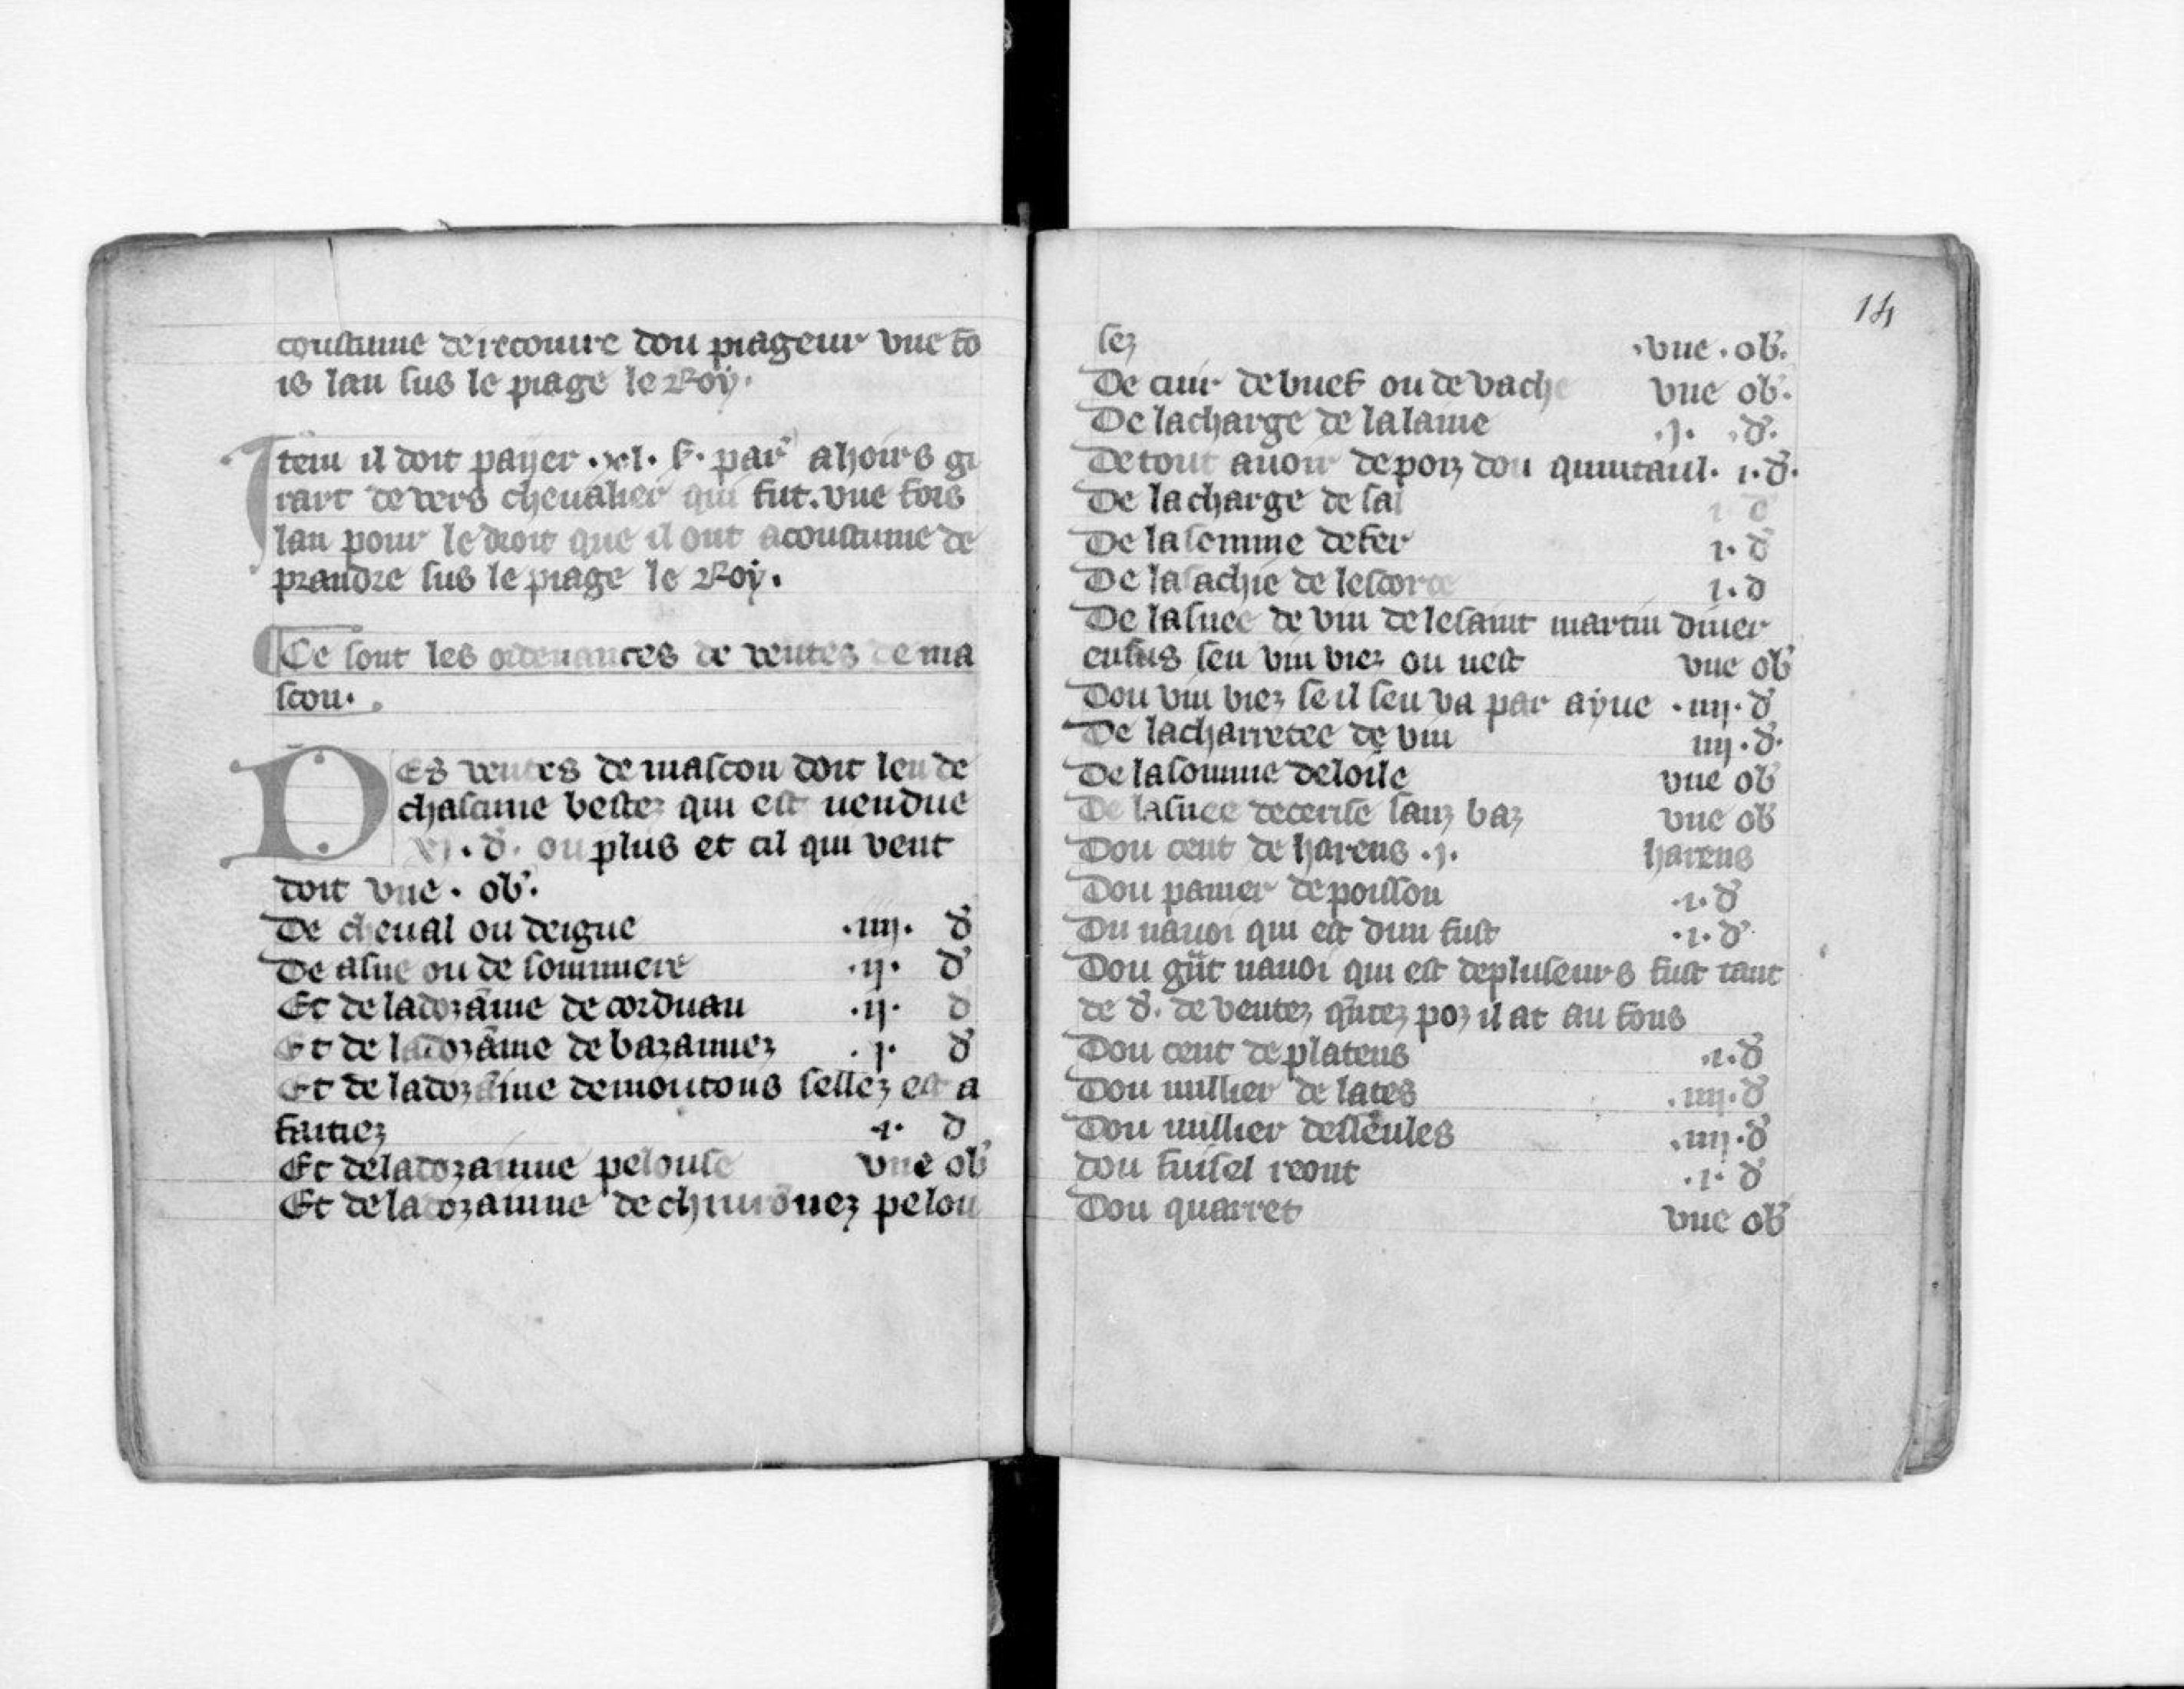 coustume de recouure dou piageur vne fo
is lan sus le piage le Roy.
Item il doit payer .xl. s. par' a hoirs gi
rart de vers cheualier qui fut. vne fois
lan pour le droit que il ont acoustume de
prandre sus le piage le Roy.
Ce sont les ordenances de ventes de ma
scon.
Des ventes de mascon doit len de
chascune bestez qui est uendue
d. ou plus et cil qui vent
doit vne. ob'.
De cheual ou deigue .iiij. d
De asne ou de sommiere .ij. d
Et de la dozäine de corduan .ij. d
Et de la dozäine de bazannez .j. d
Et de la dozäine de moutons sellez est a
faitiez .i. d
Et de la dozainne pelouse vne ob'
Et de la dozainne de pelou
14
sez .vne. ob'.
De cuir de buef ou de vache vne ob'.
De la charge de la laine .j. .d.
De tout auoir de poiz dou quintaul. i. d.
De la charge de sal i d
De la somme de fer i. d
De la sachie de lescorce i. d
De la snee de vin de le saint martin diuer
ensus seu vin viez ou nest vne ob'
Dou vin viez se il sen va par ayue .iiij. d
De la charretee de vin iiij. d.
De la somme deloile vne ob'
De la snee de cerise sanz baz vne ob
Dou cent de harens .j. harens
Dou panier de poisson .i. d
Du nauoi qui est dun fust .i. d
Dou nauoi qui est de pluseurs fust tant
de d. de ventez poz il at au fons
Dou cent de platens .i. d
Dou millier de lates .iiij. d
Dou millier desseules .iiij. d
dou fuisel reont .i. d
Dou quarret vne ob'